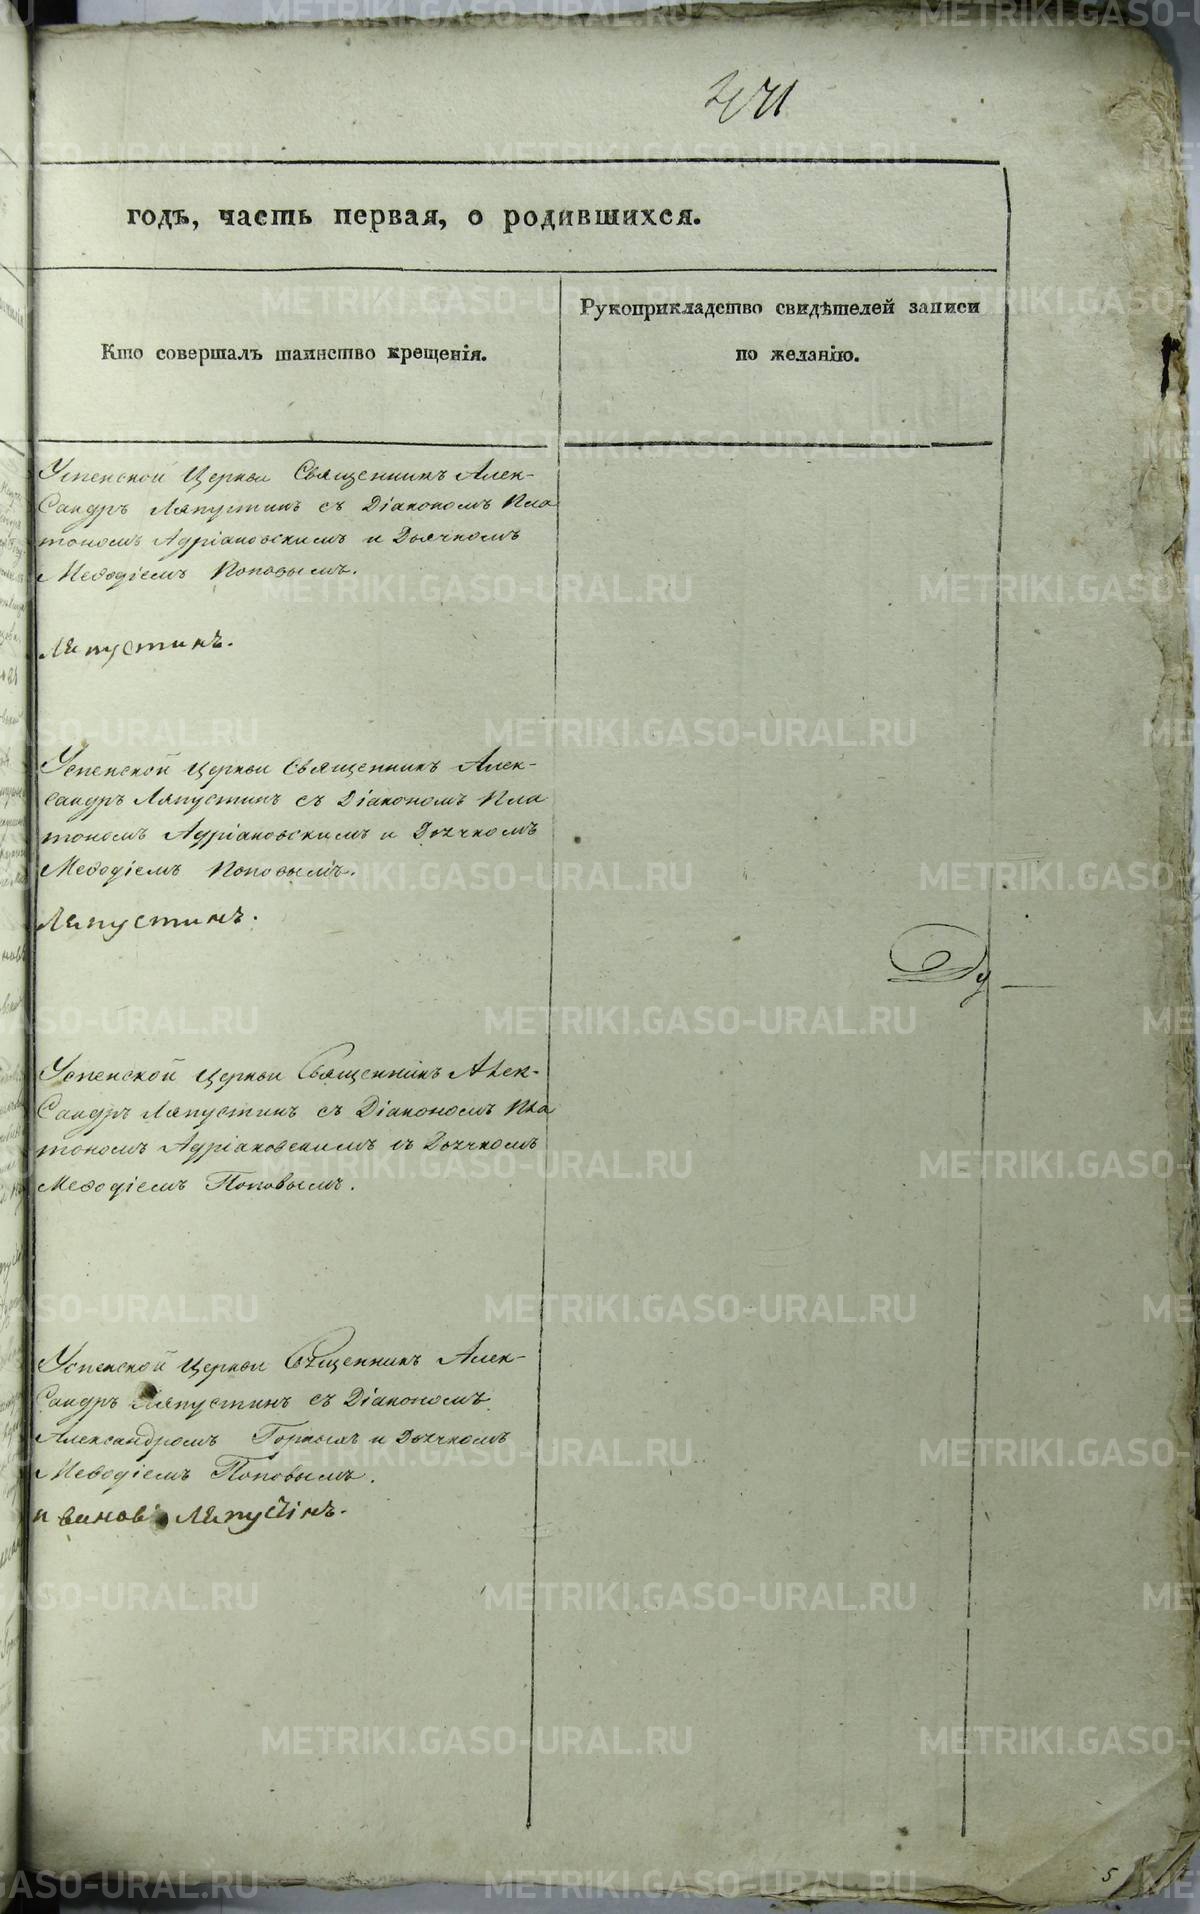 471
годъ, часть первая, о родившихся.
Кто совершалъ таинство крещенія.
Рукоприкладство свидѣтелей записи
по желанію.
Успенской Церкви Священникъ Алек-
сандръ Ляпустинъ съ Діакономъ Пла
тономъ Адріановскимъ и Дьячкомъ
Меѳодіемъ Поповымъ.
Ляпустинъ.
Успенской Церкви Священникъ Алек-
сандръ Ляпустинъ съ Діакономъ Пла
тономъ Адріановскимъ и Дьячкомъ
Меѳодіемъ Поповымъ.
Ляпустинъ.
Ду —
Успенской Церкви Священникъ Алек-
сандръ Ляпустинъ съ Діакономъ Пла
тономъ Адріановскимъ съ Дьячкомъ
Меѳодіемъ Поповымъ.
Успенской Церкви Священникъ Алек-
сандръ Ляпустинъ съ Діакономъ
Александромъ и Дьячкомъ
Меѳодіемъ Поповымъ.
Ляпустинъ.
5
METRIKI.GASO-URAL.RU